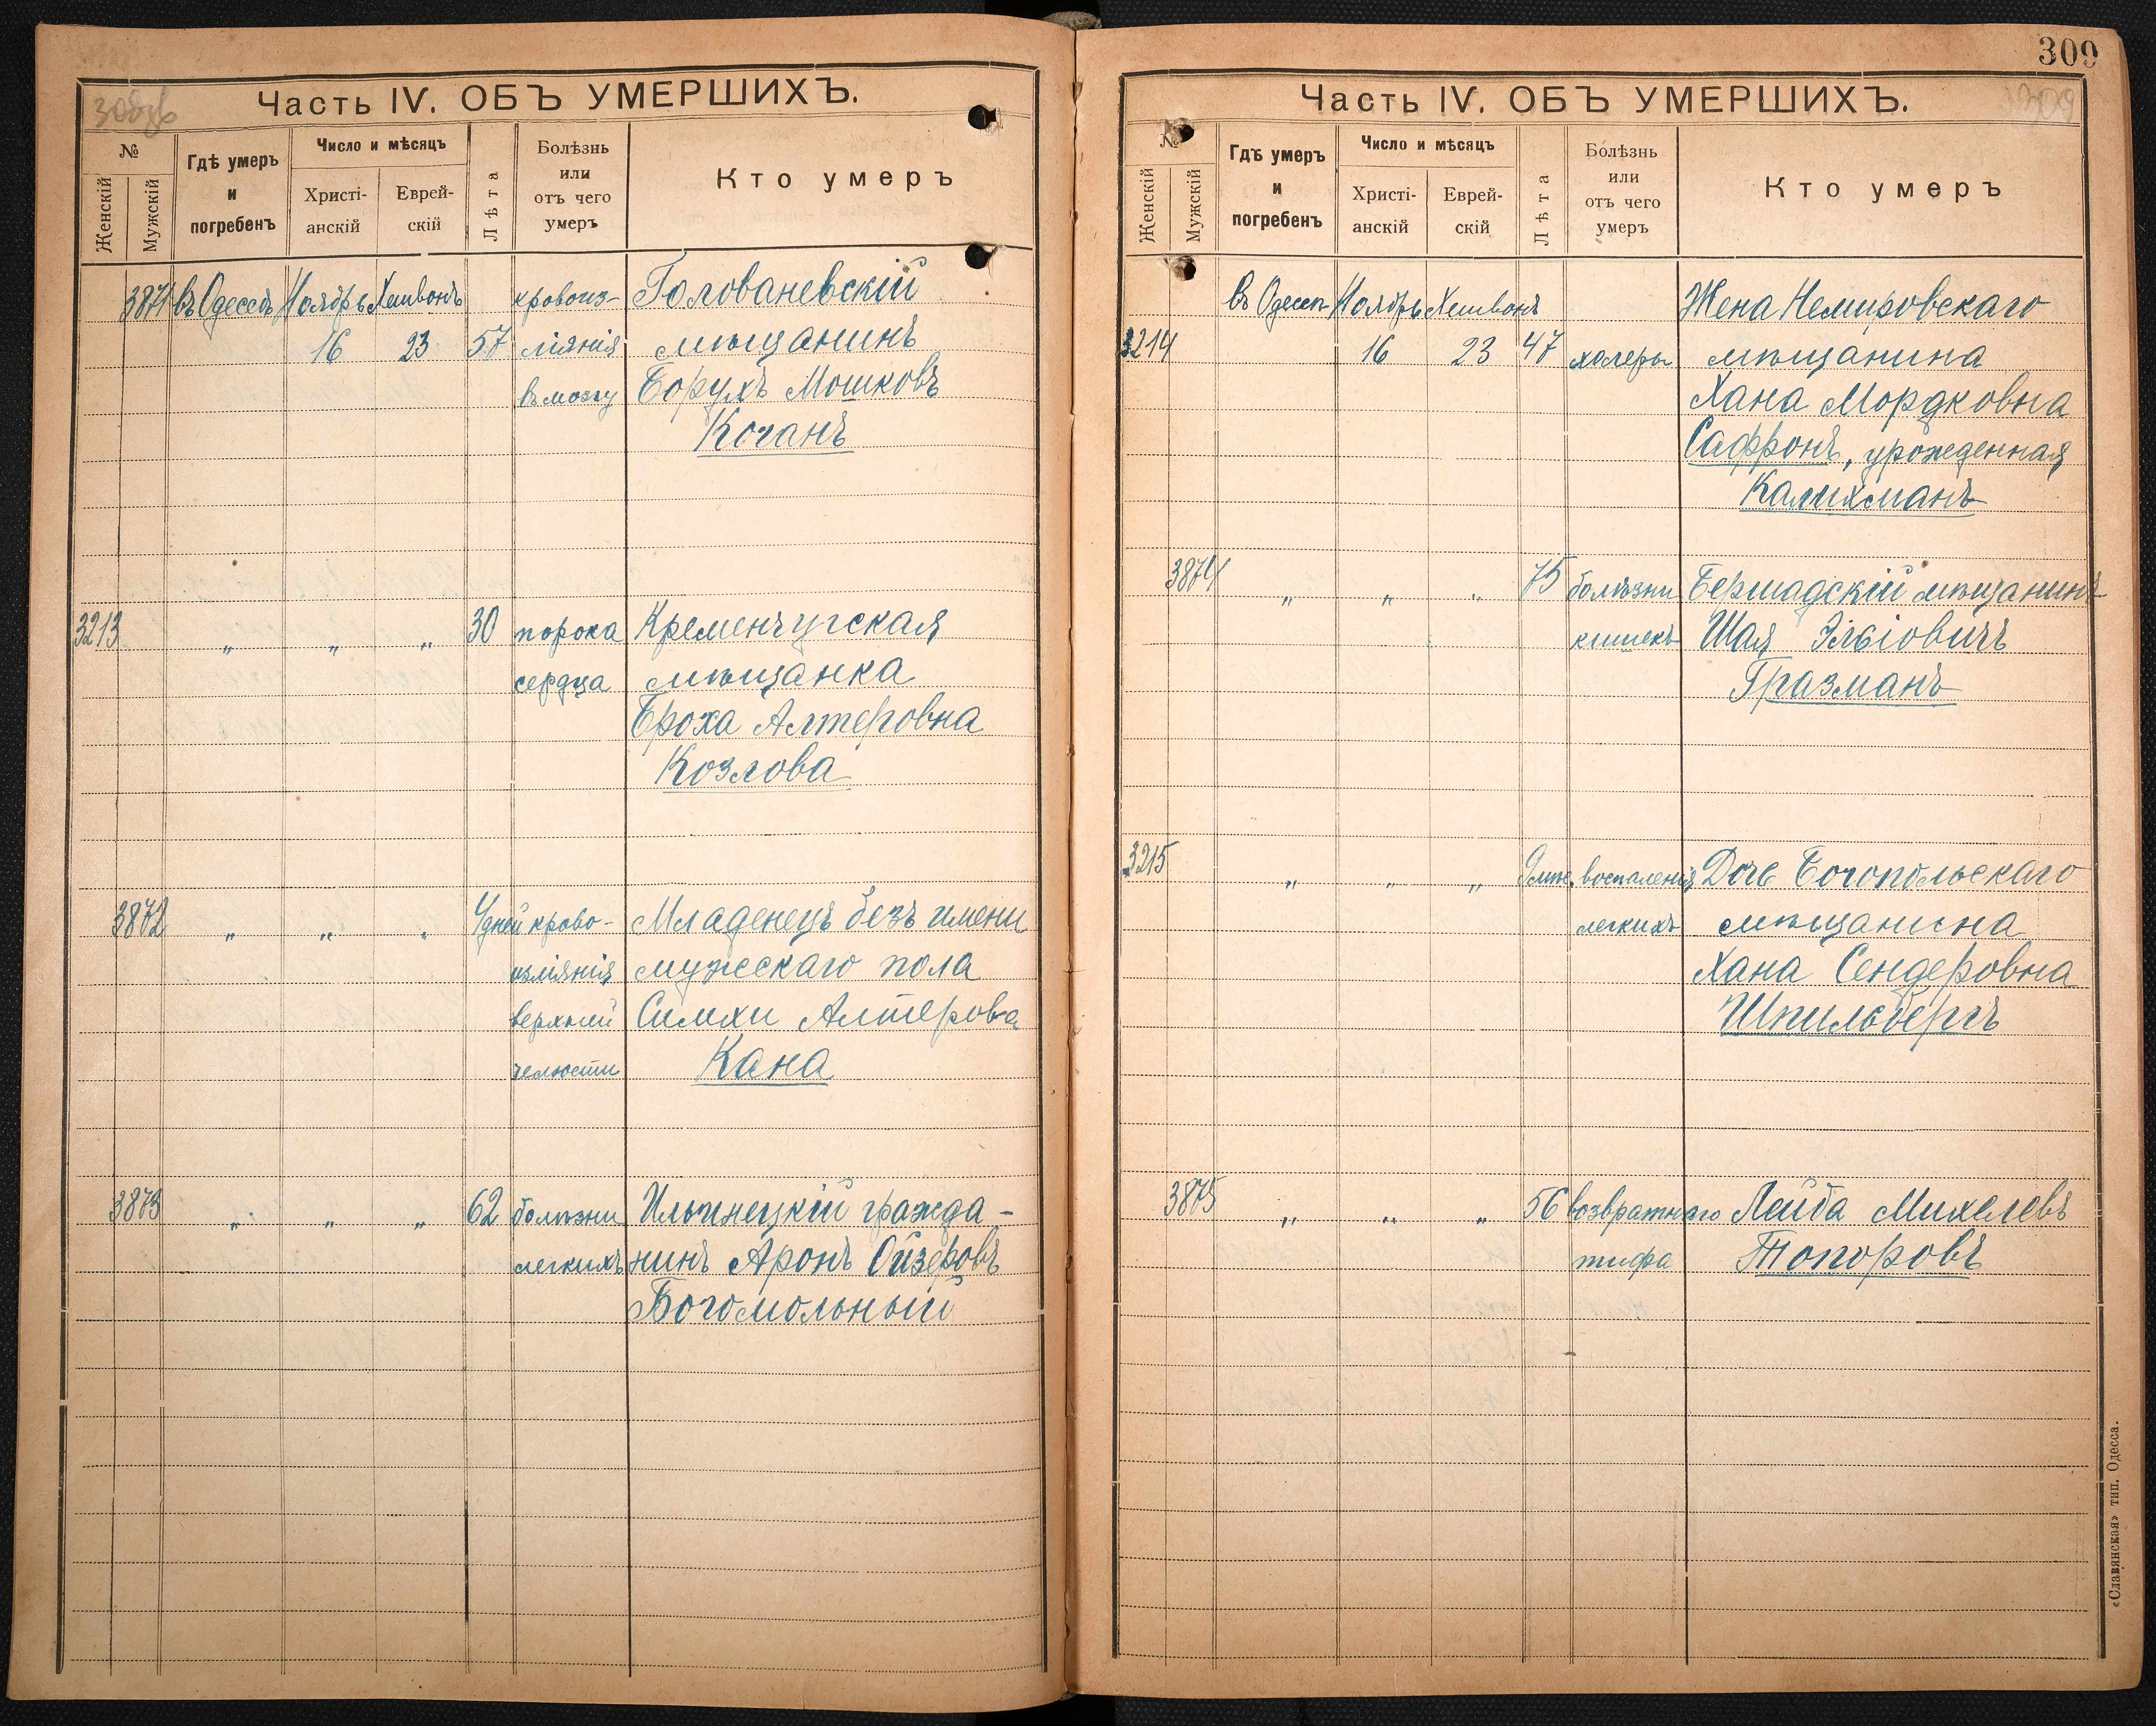 308об
Часть IV. ОБЪ УМЕРШИХЪ.
№
Женскій
Мужскій
Гдѣ умеръ
и
погребенъ
Число и мѣсяцъ
Христі-
анскій
Еврей-
скій
Лѣта
Болѣзнь
или
отъ чего
умеръ
Кто умеръ
3871 въ Одессѣ Ноябрь Хешвонъ кровоиз- Голованевскій
16 23 57 ліянія мѣщанинъ
въ мозгу Борухъ Мошковъ
Коганъ
3213 „ „ „ 30 порока Кременчугская
сердца мѣщанка
Броха Алтеровна
Козлова
3872 „ „ „ 4 дней крово- Младенецъ безъ имени
изліянія мужескаго пола
верхней Симхи Алтерова
челюсти Кана
3873 „ „ „ 62 болѣзни Ильинецкій гражда-
легкихъ нинъ Аронъ Ойзеровъ
Богомольный
309
309
Часть IV. ОБЪ УМЕРШИХЪ.
№
Женскій
Мужскій
Гдѣ умеръ
и
погребенъ
Число и мѣсяцъ
Христі-
анскій
Еврей-
скій
Лѣта
Болѣзнь
или
отъ чего
умеръ
Кто умеръ
въ Одессѣ Ноябрь Хешвонъ Жена Немировскаго
3214 16 23 47 холеры мѣщанина
Хана Мордковна
Сафронъ, урожденная
Калихманъ
3874 „ „ „ 75 болѣзни Бершадскій мѣщанинъ
кишекъ Шая Эльіовичъ
Гразманъ
3215 „ „ „ 9 мѣс. воспаленія Дочь Богопольскаго
легкихъ мѣщанина
Хана Сендеровна
Шпильбергъ
3875 „ „ „ 56 возвратнаго Лейба Михелевъ
тифа Топоровъ
«Славянская» тип. Одесса.